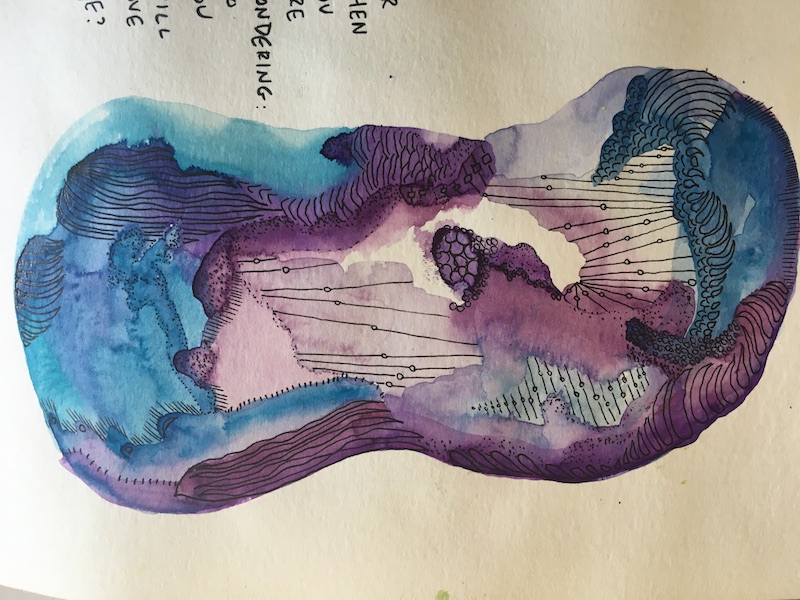 R
HEN
OU
RE
ONDERING:
O
OU
ILL
OVE
E?